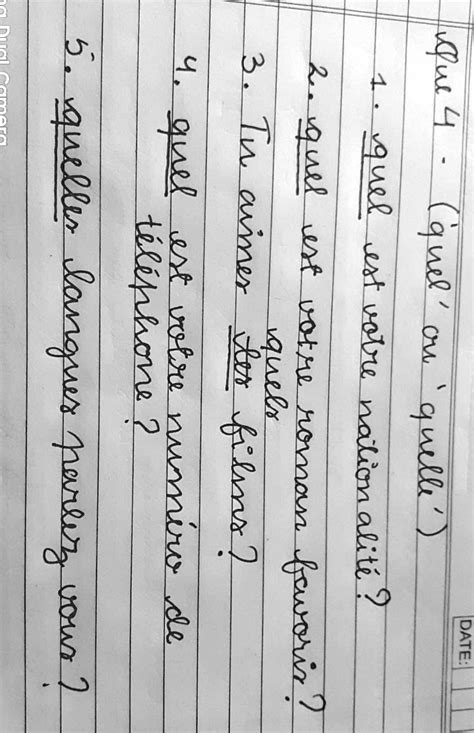 DATE:
Que 4 - ('quel' ou 'quelle')
1. quel est votre nationalité?
2. quel est votre roman favoris?
quels
3. Tu aimes tes films?
4. quel est votre numéro de
téléphone?
5. quelles langues parlez vous?
Dual Camera